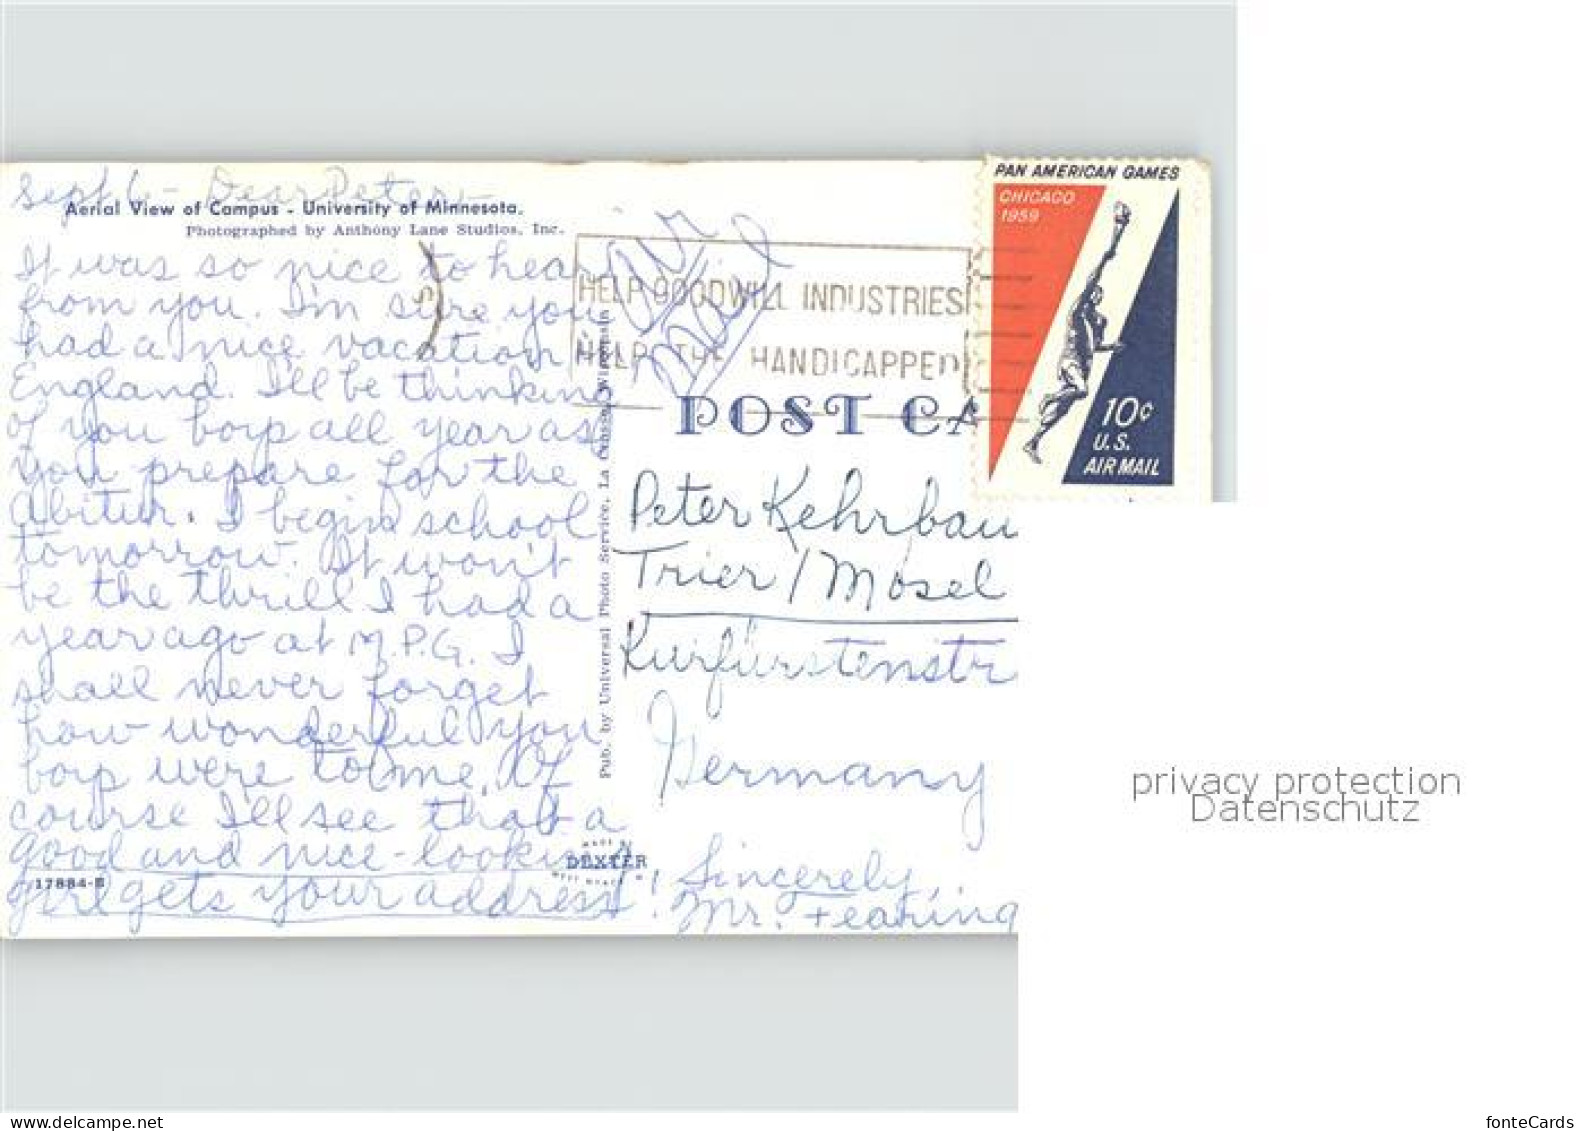 Sept 6 - Dear Peter,
Aerial View of Campus - University of Minnesota.
Photographed by Anthony Lane Studios, Inc.
It was so nice to hear
from you. I'm sure you
had a nice vacation
England. I'll be thinking
of you boys all year as
you prepare for the
Abitur. I begin school
tomorrow. It won't
be the thrill I had a
year ago at M.P.G. I
shall never forget
how wonderful you
boys were to me. Of
course I'll see that a
good and nice-looking
girl gets your address!
17884-B
Pub. by Universal Photo Service, La Crosse, Wisconsin
MADE BY
DEXTER
Air
Mail
HELP GOODWILL INDUSTRIES
HELP THE HANDICAPPED
PAN AMERICAN GAMES
CHICAGO
1959
10¢
U.S.
AIR MAIL
POST CA
Peter Kehrbau
Trier/Mosel
Kurfürstenstr
Germany
Sincerely,
Mr. Fearing
privacy protection
Datenschutz
https://www.delcampe.net
fonteCards